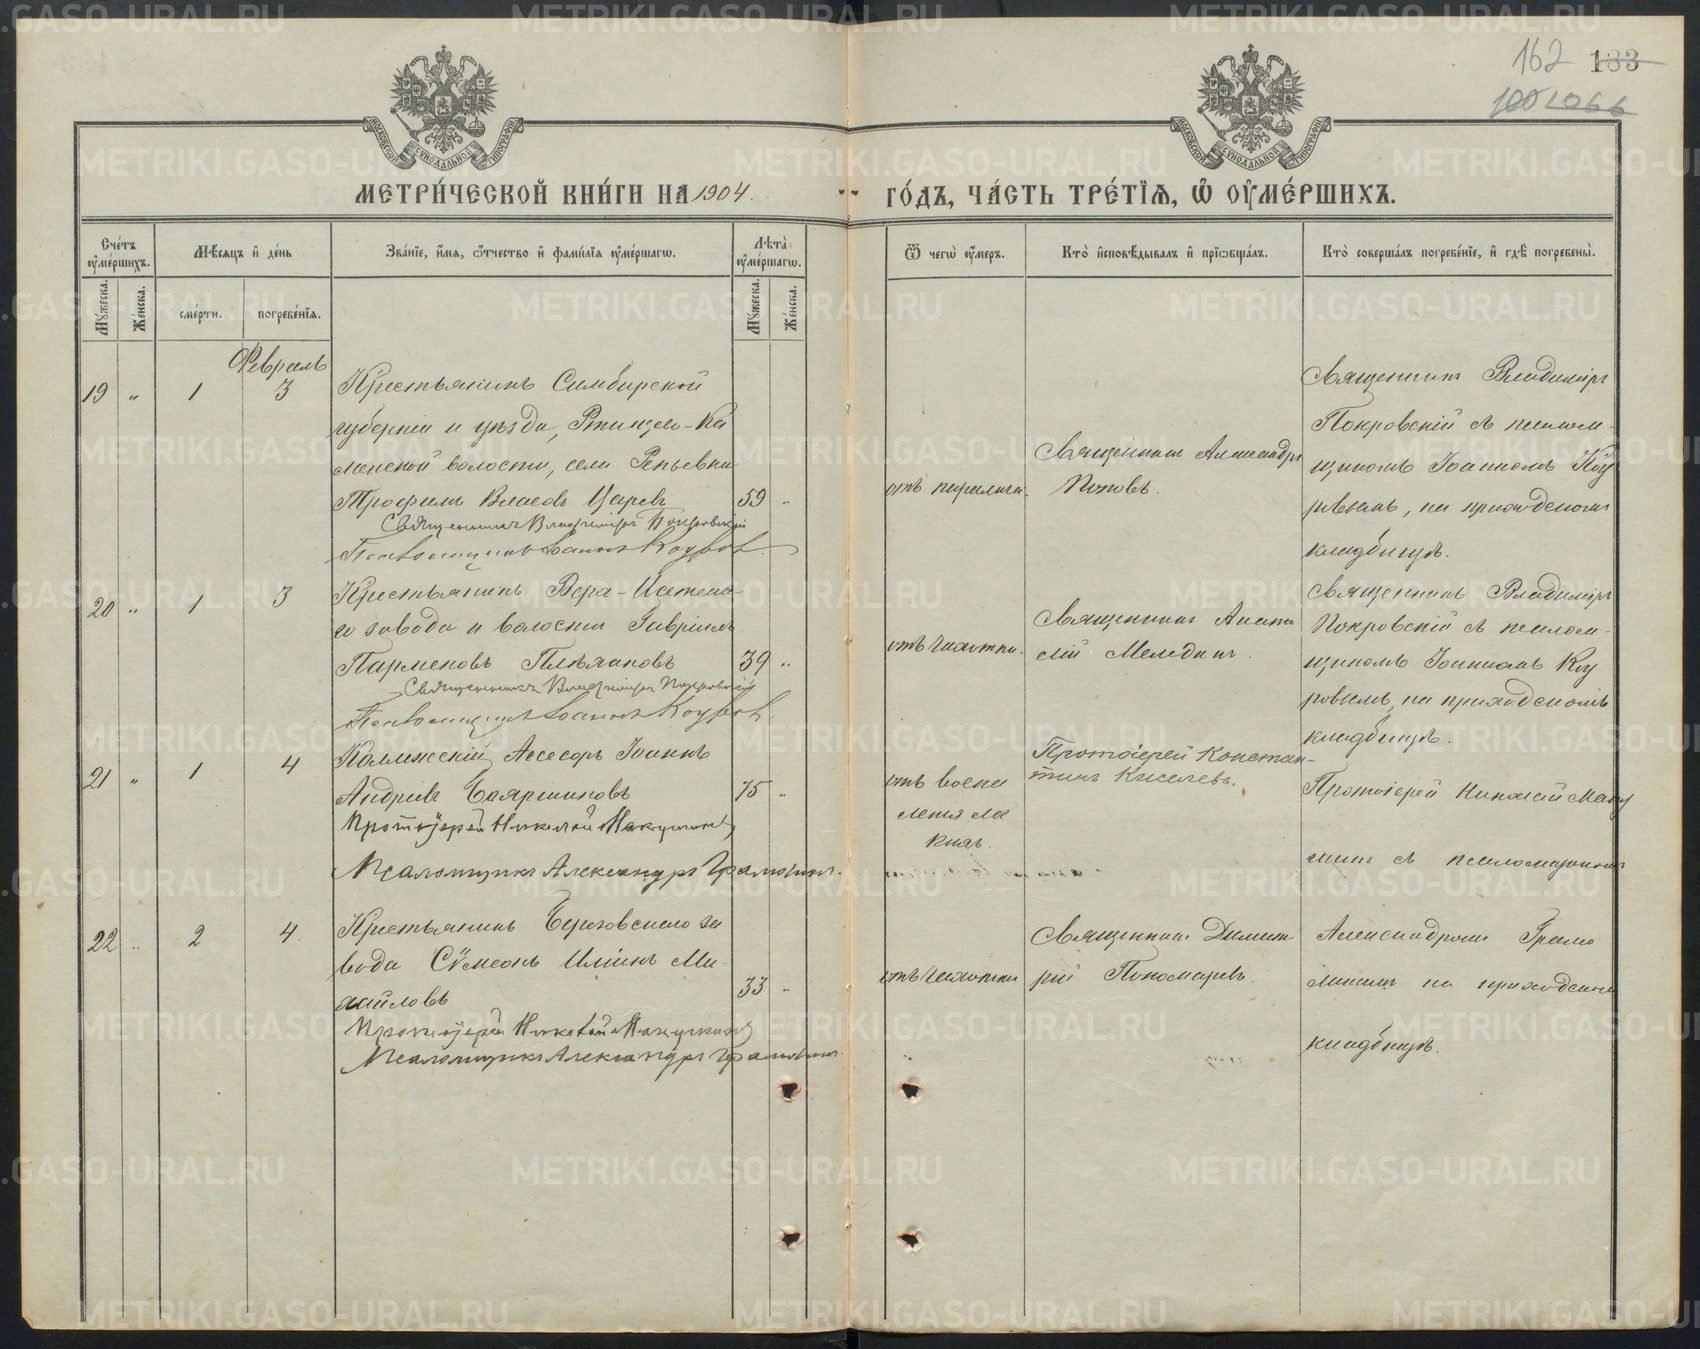 162 183
МЕТРИ́ЧЕСКОЙ КНИ́ГИ НА 1904 ГО́ДЪ, ЧА́СТЬ ТРЕ́ТІѦ, Ѽ ОУ҆МЕ́РШИХЪ.
Сче́тъ оу҆ме́ршихъ.
Мꙋ́жеска.
Же́нска.
Мѣ́сяцъ и҆ де́нь
сме́рти.
погребе́нїѧ.
Зва́нїе, и҆́мѧ, ѻ҆́тчество и҆ фами́лїѧ оу҆ме́ршагѡ.
Лѣ́та оу҆ме́ршагѡ.
Мꙋ́жеска.
Же́нска.
Ѿ чегѡ̀ оу҆́меръ.
Кто̀ и҆сповѣ́дывалъ и҆ прїѡбща́лъ.
Кто̀ соверша́лъ погребе́нїе, и҆ гдѣ̀ погребены̀.
Февраль
19 " 1 3
Крестьянинъ Симбирской
губерніи и уѣзда, Ртищево-Ка
менской волости, села Репьевки
Трофимъ Власовъ Царевъ 59 "
Священникъ Владиміръ Покровскій
Псаломщикъ Іоаннъ Коуровъ
отъ паралича.
Священникъ Александръ
Поповъ.
Священникъ Владиміръ
Покровскій съ псалом-
щикомъ Іоанномъ Коу
ровымъ, на приходскомъ
кладбищѣ.
20 " 1 3
Крестьянинъ Верх-Исетска-
го завода и волости Гавріилъ
Парменовъ Плѣхановъ 39 "
Священникъ Владиміръ Покровскій
Псаломщикъ Іоаннъ Коуровъ.
отъ чахотки.
Священникъ Анато
лій Меледин.
Священникъ Владиміръ
Покровскій съ псалом-
щикомъ Іоанномъ Коу
ровымъ, на приходскомъ
кладбищѣ.
21 " 1 4
Коллежскій Ассесоръ Іоаннъ
Андреевъ Бояршиновъ 75 "
Протоіерей Николай Макушинъ
Псаломщикъ Александръ Грамолинъ.
отъ воспа
ленія ле
гкихъ.
Протоіерей Констан-
тинъ Киселевъ.
Протоіерей Николай Маку
шинъ съ псаломщикомъ
22 " 2 4.
Крестьянинъ Березовскаго за
вода Сѵмеонъ Илiинъ Ми-
хайловъ 33 "
Протоіерей Николай Макушинъ
Псаломщикъ Александръ Грамолинъ.
отъ чахотки
Священникъ Димит
рій Пономаревъ.
Александромъ Грамо
линымъ на приходскомъ
кладбищѣ.
METRIKI.GASO-URAL.RU